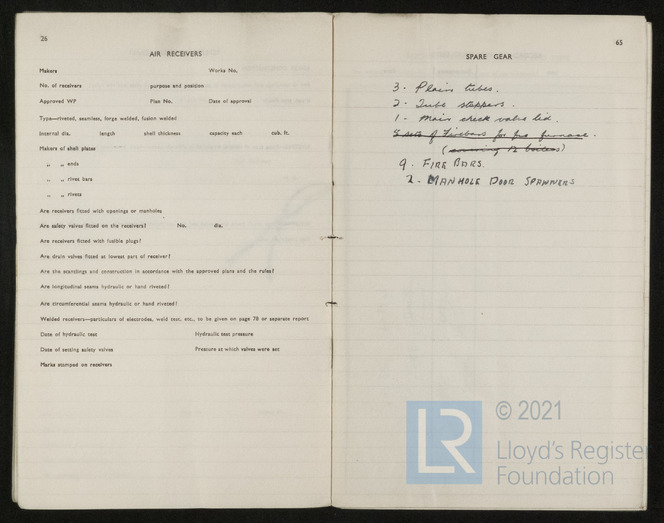 26
AIR RECEIVERS
Makers Works No.
No. of receivers purpose and position
Approved WP Plan No. Date of approval
Type—riveted, seamless, forge welded, fusion welded
Internal dia. length shell thickness capacity each cub. ft.
Makers of shell plates
„ „ ends
„ „ rivet bars
„ „ rivets
Are receivers fitted with openings or manholes
Are safety valves fitted on the receivers? No. dia.
Are receivers fitted with fusible plugs?
Are drain valves fitted at lowest part of receiver?
Are the scantlings and construction in accordance with the approved plans and the rules?
Are longitudinal seams hydraulic or hand riveted?
Are circumferential seams hydraulic or hand riveted?
Welded receivers—particulars of electrodes, weld test, etc., to be given on page 78 or separate report
Date of hydraulic test Hydraulic test pressure
Date of setting safety valves Pressure at which valves were set
Marks stamped on receivers
65
SPARE GEAR
3 - Plain tubes.
2 - Tube stoppers.
1 - Main check valve lid.
of Firebars for furnace.
9. FIRE BARS.
2. MANHOLE DOOR SPANNERS
LR
© 2021
Lloyd's Register
Foundation